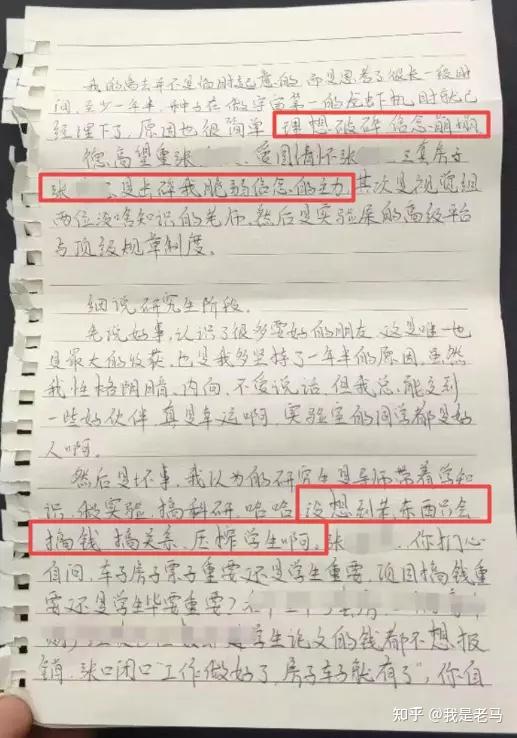 我的离去并不是临时起意的,而是思考了很长一段时
间,至少一年半,种子在做宇宙第一的 机时就已
经埋下了,原因也很简单 理想破碎 信念崩塌
德高望重张 爱国情怀张 三套房子
张 是击碎我脆弱信念的主力 其次是视觉组
两位没啥知识的老师,然后是实验展的高级平台
与顶级规章制度。
细说研究生阶段。
先说好事,认识了很多要好的朋友,这是唯一也
是最大的收获,也是我多坚持了一年半的原因,虽然
我性格阴暗、内向,不爱说话,但我总能交到
一些好伙伴 真是幸运啊,实验室的同学都是好
人啊。
然后是坏事,我以为的研究生是导师带着学知
识,做实验,搞科研,哈哈 没想到 东西只会
搞钱、搞关系、压榨学生啊。张 你扪心
自问,车子房子票子重要还是学生重要,项目搞钱重
要还是学生毕业重要?
是学生论文的钱都不想报
销,张口闭口“工作做好了,房子车子就有了”,你自
知乎 @我是老马